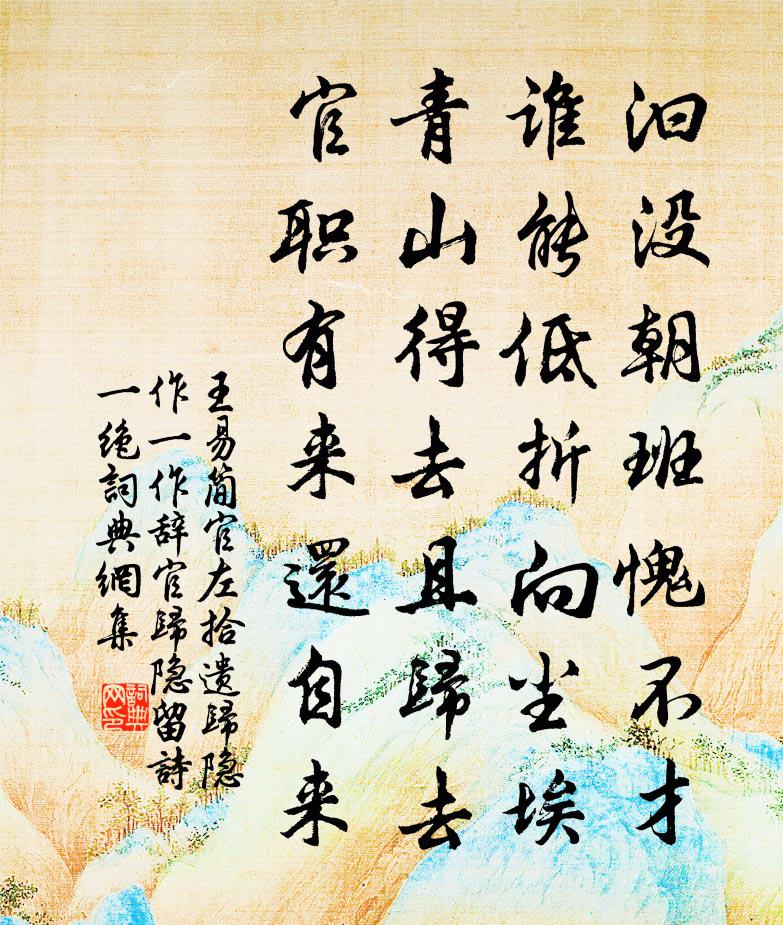 汩没朝班愧不才
谁能低折向尘埃
青山得去且歸去
官职有来還自来
王易简官左拾遗歸隐
作一作辞官歸隐留詩
一绝詞典網集
詞典
网印